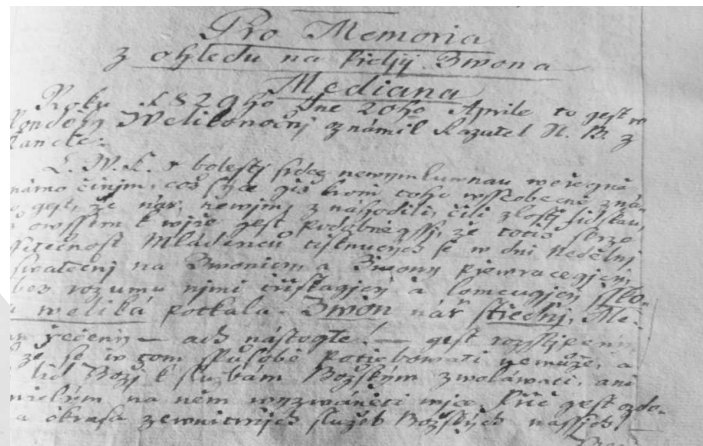 Pro Memoria
z ohledu na křtěgj Zwona
Mediana
Roku 1829ho Dne 20ho Aprile to gest w
Pondělý Welikonočnj známil Kazatel N. B. z
Kancle:
L. W. K. S bolestj srdce newymluwnau weřegně
známo činjm, což gjž krom toho wsseobecně zná-
gest, že nař newjmj z náhodili, čili zlostj lidskau,
owssem k wjře gest podobněgssj že toto skrze
Mládenců tisknucých se w dni Nedělnj
swátečnj na Zwonicy a Zwony přewracegjcý,
bez rozumu njmi třjskagjcý a lomcugjcý ško-
weliká potkala. Zwon nář střednj, Me-
řečený — ach nástogte! — gest rozsstjpený
že se w tom spůsobě potřebowati nemůže, a
lid Božj k službám Božským zwoláwati, anj
na něm wyzwáněti wjce. Pryč gest ozdo-
a okrasa zewnitrnjch služeb Božských nassjch!